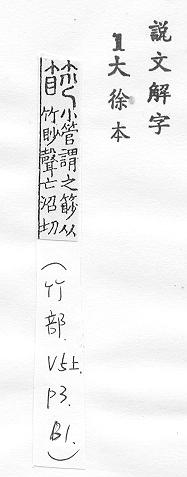 説文解字
1大徐本
篎 小管謂之篎从
竹眇聲亡沼切
(竹部. V5上. P3. B1.)